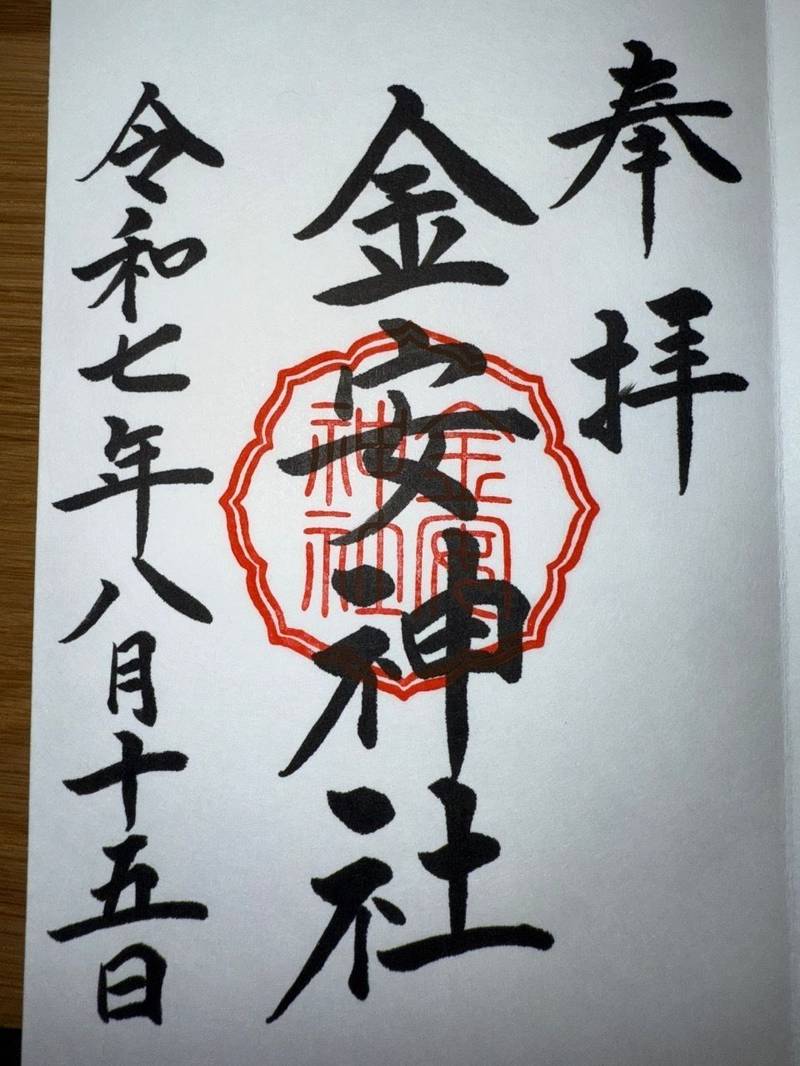 奉拝
金安神社
金安
神社
令和七年八月十五日